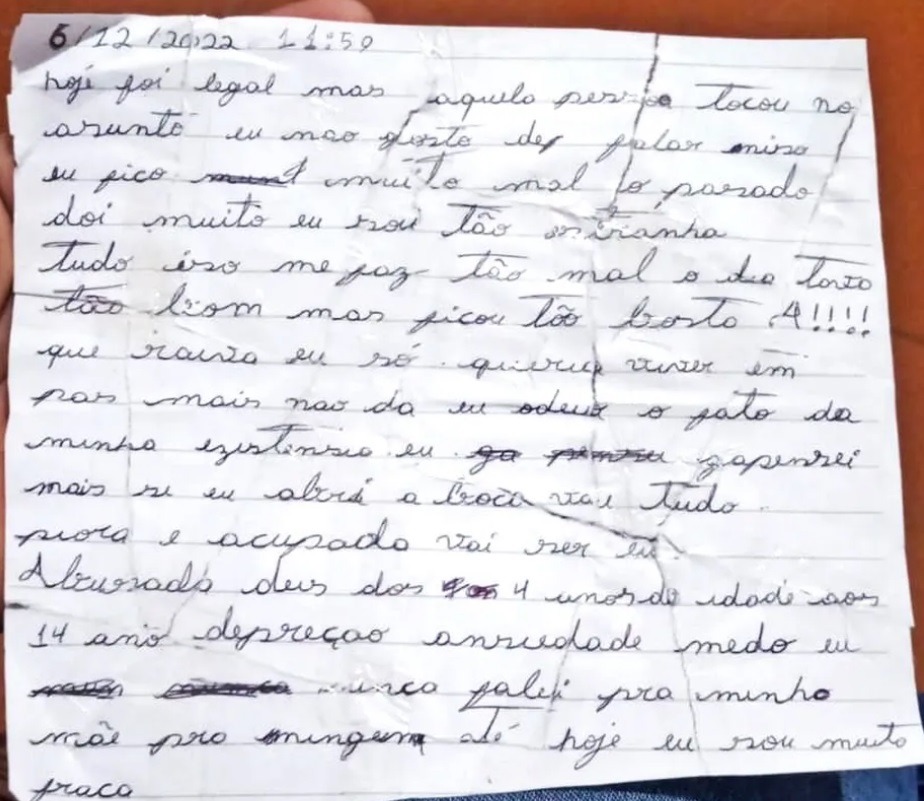 6/12/2022 11:59
hoje foi legal mas aquela pessoa tocou no
asunto eu nao gosto de falar niso
eu fico muito mal o pasado
doi muito eu sou tão estranha
tudo iso me faz tão mal o dia tava
tão bom mas ficou tão bosta A!!!!
que raiva eu só queria viver em
pas mais nao da eu odeio o fato da
minha ezistensia eu gapensei
mais se eu abri a boca vai tudo
piora e acupada vai ser eu
Abusada deus dos 4 anos de idade aos
14 ano depreçao ansiedade medo eu
nunca falei pra minha
mãe pro mingem até hoje eu sou muito
fraca